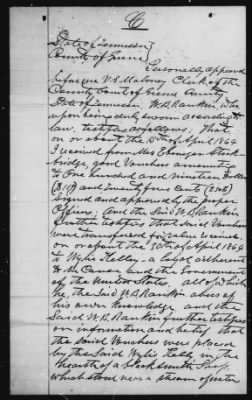 C
State of Tennessee
County of Greene
Personally Appeared
before me V.S. Maloney Clerk of the
County Court of Greene County
State of Tennessee W.B. Rankin, who
upon being duly sworn according to
law, testifies as follows. That
on or about the 15th of April 1864
I received from Mrs Ebenezer Stock-
bridge, good Vouchers amounting
to One hundred and nineteen Dollars
and twenty five Cents
Signed and approved by the proper
Officers; And the Said W.B. Rankin
further testifies that said Vouchers
were transferred for value received
on or about the 20th of April 1864
to Wylie Kelly – a loyal adherent
to the Cause and the Government
of the United States, all of which
he, the Said W.B. Rankin avers of
his own knowledge and the
Said W.B. Rankin further testifies
on information and belief that
the said Vouchers were placed
by the Said Wylie Kelly in the
hearth of a blacksmith Shop,
which stood near a stream of water